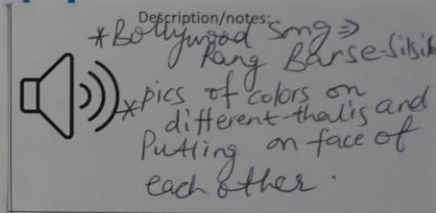 Description/notes:
*Bollywood song ⇒
Rang Barse-Silsil
*pics of colors on
different thalis and
Putting on face of
each other.